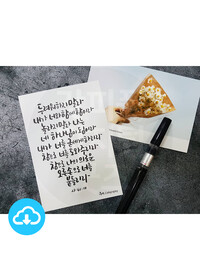 두려워하지말라
내가 너와함께함이라
놀라지말라 나는
네 하나님이 됨이라
내가 너를 굳세게하리라
참으로 너를 도와주리라
참으로 나의 의로운
오른손으로 너를
붙들리라
사 41:10